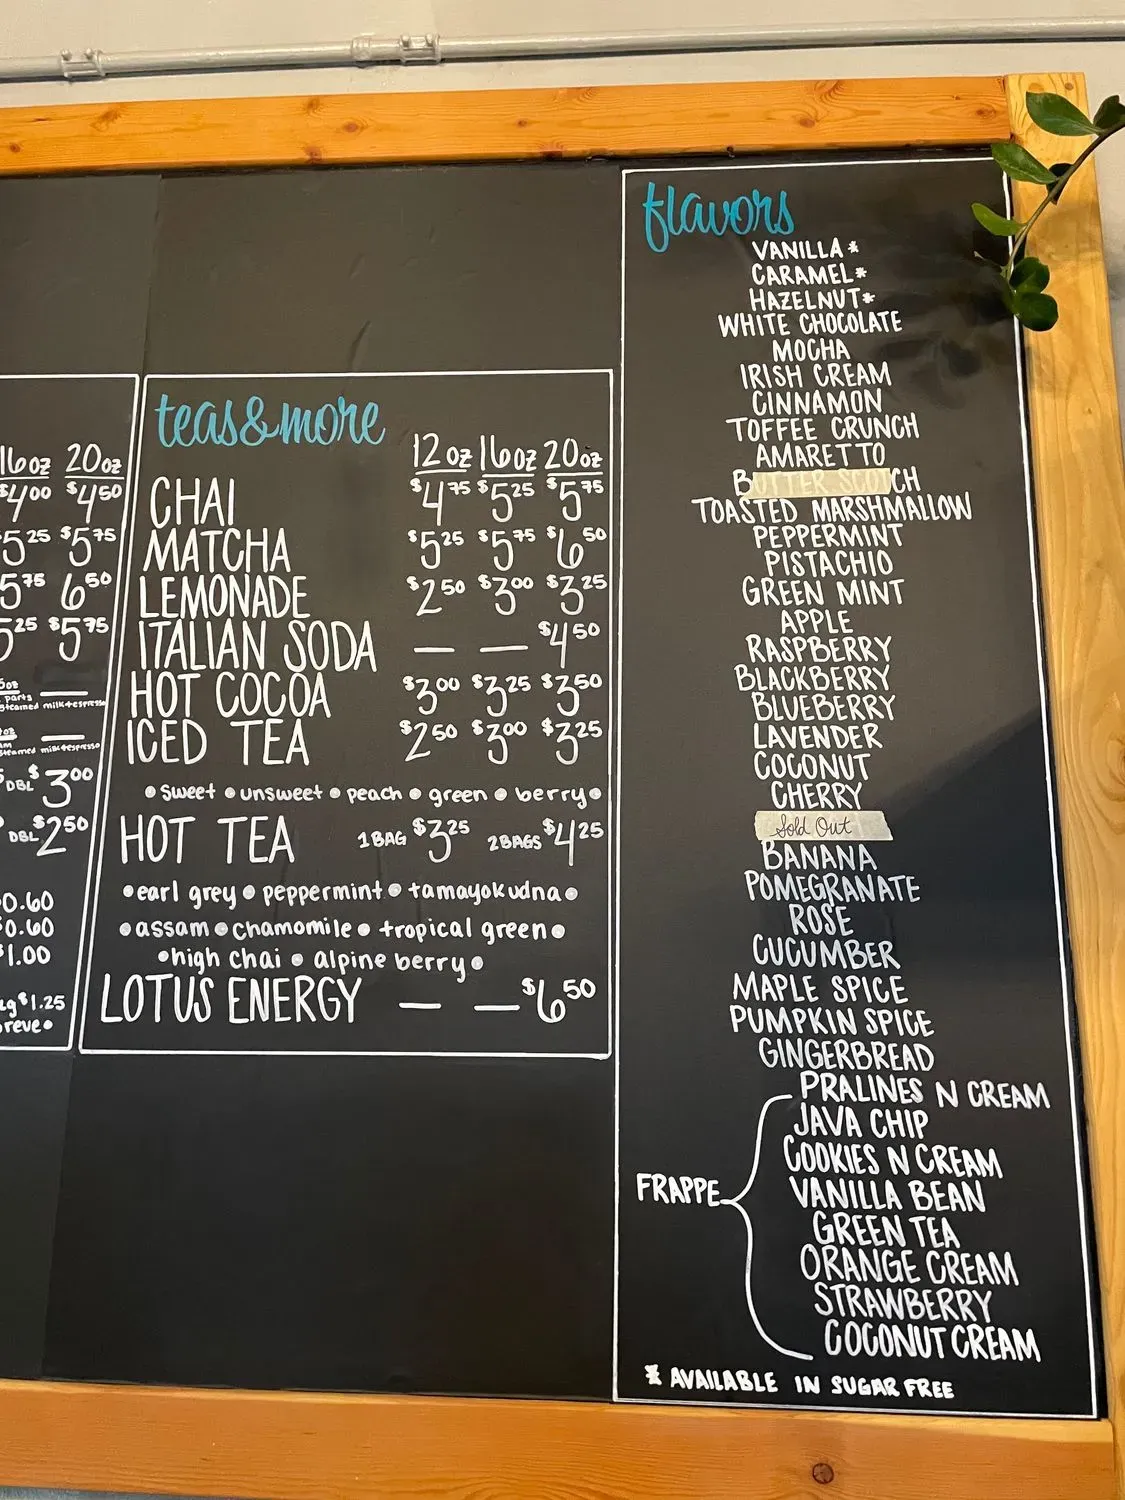 16oz 20oz
$4.00 $4.50
5.25 $5.75
5.75 6.50
5.25 $5.75
parts
steamed milk+espresso
steamed milk+espresso
DBL $3.00
DBL $2.50
0.60
$0.60
$1.00
$1.25
breve•
teas&more
12oz 16oz 20oz
CHAI $4.75 $5.25 $5.75
MATCHA $5.25 $5.75 $6.50
LEMONADE $2.50 $3.00 $3.25
ITALIAN SODA — — $4.50
HOT COCOA $3.00 $3.25 $3.50
ICED TEA $2.50 $3.00 $3.25
• sweet • unsweet • peach • green • berry •
HOT TEA 1BAG $3.25 2BAGS $4.25
•earl grey • peppermint • tamayokudna •
•assam • chamomile • tropical green •
•high chai • alpine berry •
LOTUS ENERGY — — $6.50
flavors
VANILLA*
CARAMEL*
HAZELNUT*
WHITE CHOCOLATE
MOCHA
IRISH CREAM
CINNAMON
TOFFEE CRUNCH
AMARETTO
BUTTER SCOTCH
TOASTED MARSHMALLOW
PEPPERMINT
PISTACHIO
GREEN MINT
APPLE
RASPBERRY
BLACKBERRY
BLUEBERRY
LAVENDER
COCONUT
CHERRY
Sold Out
BANANA
POMEGRANATE
ROSE
CUCUMBER
MAPLE SPICE
PUMPKIN SPICE
GINGERBREAD
PRALINES N CREAM
JAVA CHIP
COOKIES N CREAM
FRAPPE VANILLA BEAN
GREEN TEA
ORANGE CREAM
STRAWBERRY
COCONUT CREAM
* AVAILABLE IN SUGAR FREE